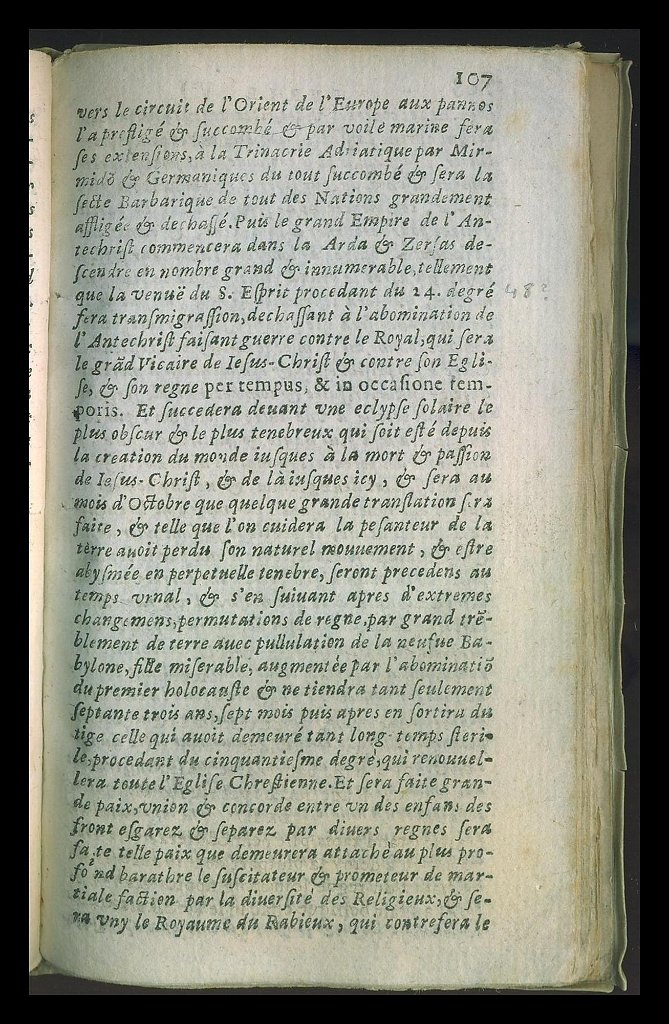 107
vers le circuit de l'Orient de l'Europe aux pannos
l'a prestigé & succombé & par voile marine fera
ses extensions, à la Trinacrie Adriatique par Mir-
midõ & Germaniques du tout succombé & sera la
secte Barbarique de tout des Nations grandement
affligée & dechassé. Puis le grand Empire de l'An-
techrist commencera dans la Arda & Zersas de-
scendre en nombre grand & innumerable, tellement
que la venuë du S. Esprit procedant du 24. degré 48?
fera transmigrassion, dechassant à l'abomination de
l'Antechrist faisant guerre contre le Royal, qui sera
le grãd Vicaire de Iesus-Christ & contre son Egli-
se, & son regne per tempus, & in occasione tem-
poris. Et succedera deuant vne eclypse solaire le
plus obscur & le plus tenebreux qui soit esté depuis
la creation du monde iusques à la mort & passion
de Iesus-Christ, & de là iusques icy, & sera au
mois d'Octobre que quelque grande translation sera
faite, & telle que l'on cuidera la pesanteur de la
terre auoit perdu son naturel mouuement, & estre
abysmée en perpetuelle tenebre, seront precedens au
temps vrnal, & s'en suiuant apres d'extremes
changemens, permutations de regne, par grand trẽ-
blement de terre auec pullulation de la neufue Ba-
bylone, fille miserable, augmentée par l'abominatiõ
du premier holocauste & ne tiendra tant seulement
septante trois ans, sept mois puis apres en sortira du
tige celle qui auoit demeuré tant long-temps steri-
le, procedant du cinquantiesme degré, qui renouuel-
lera toute l'Eglise Chrestienne. Et sera faite gran-
de paix, vnion & concorde entre vn des enfans des
front esgarez & separez par diuers regnes sera
faite telle paix que demeurera attaché au plus pro-
fond barathre le suscitateur & prometeur de mar-
tiale faction par la diuersité des Religieux, & se-
ra vny le Royaume du Rabieux, qui contrefera le